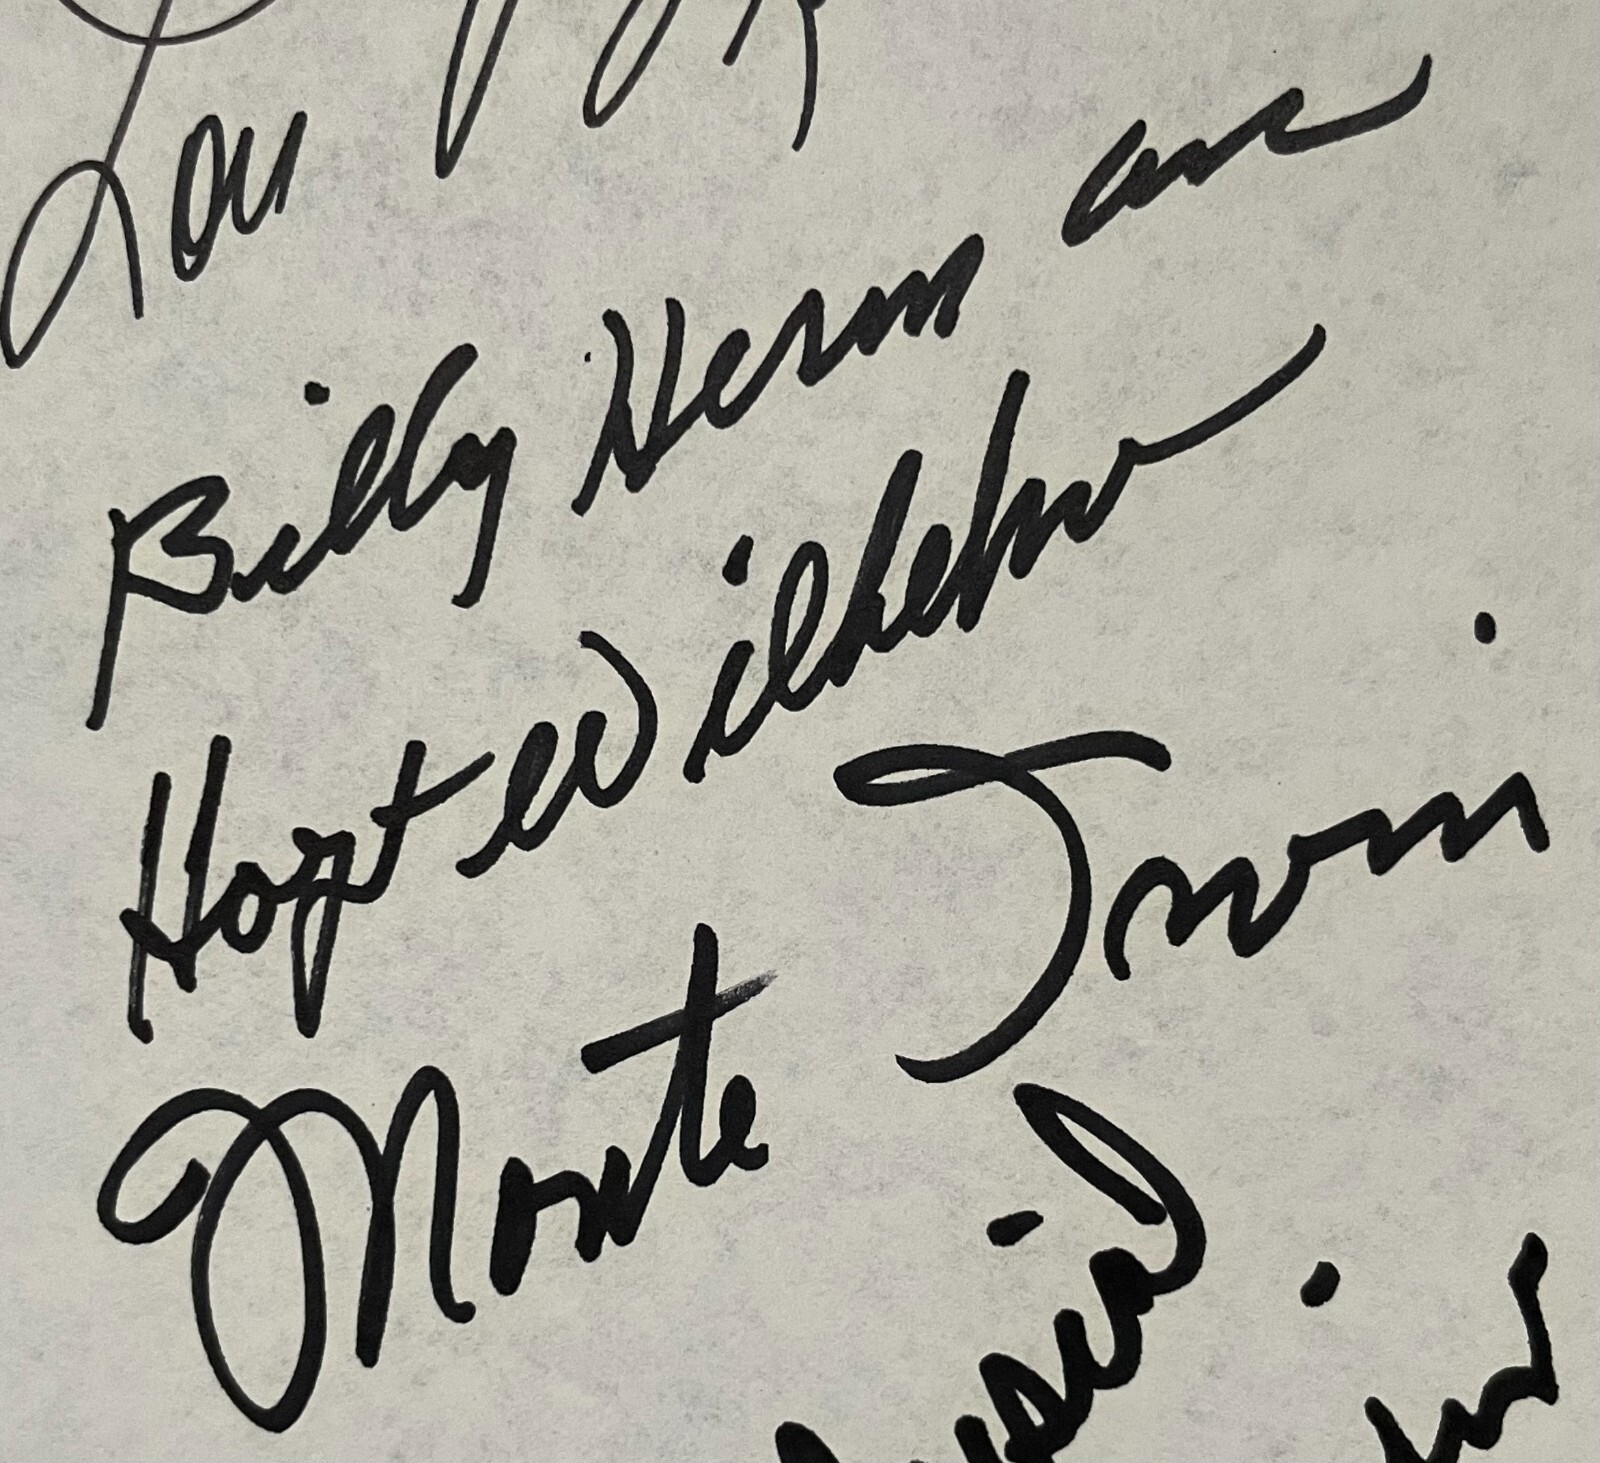 Lou
Billy Herman
Hoyt Wilhelm
Monte Irvin